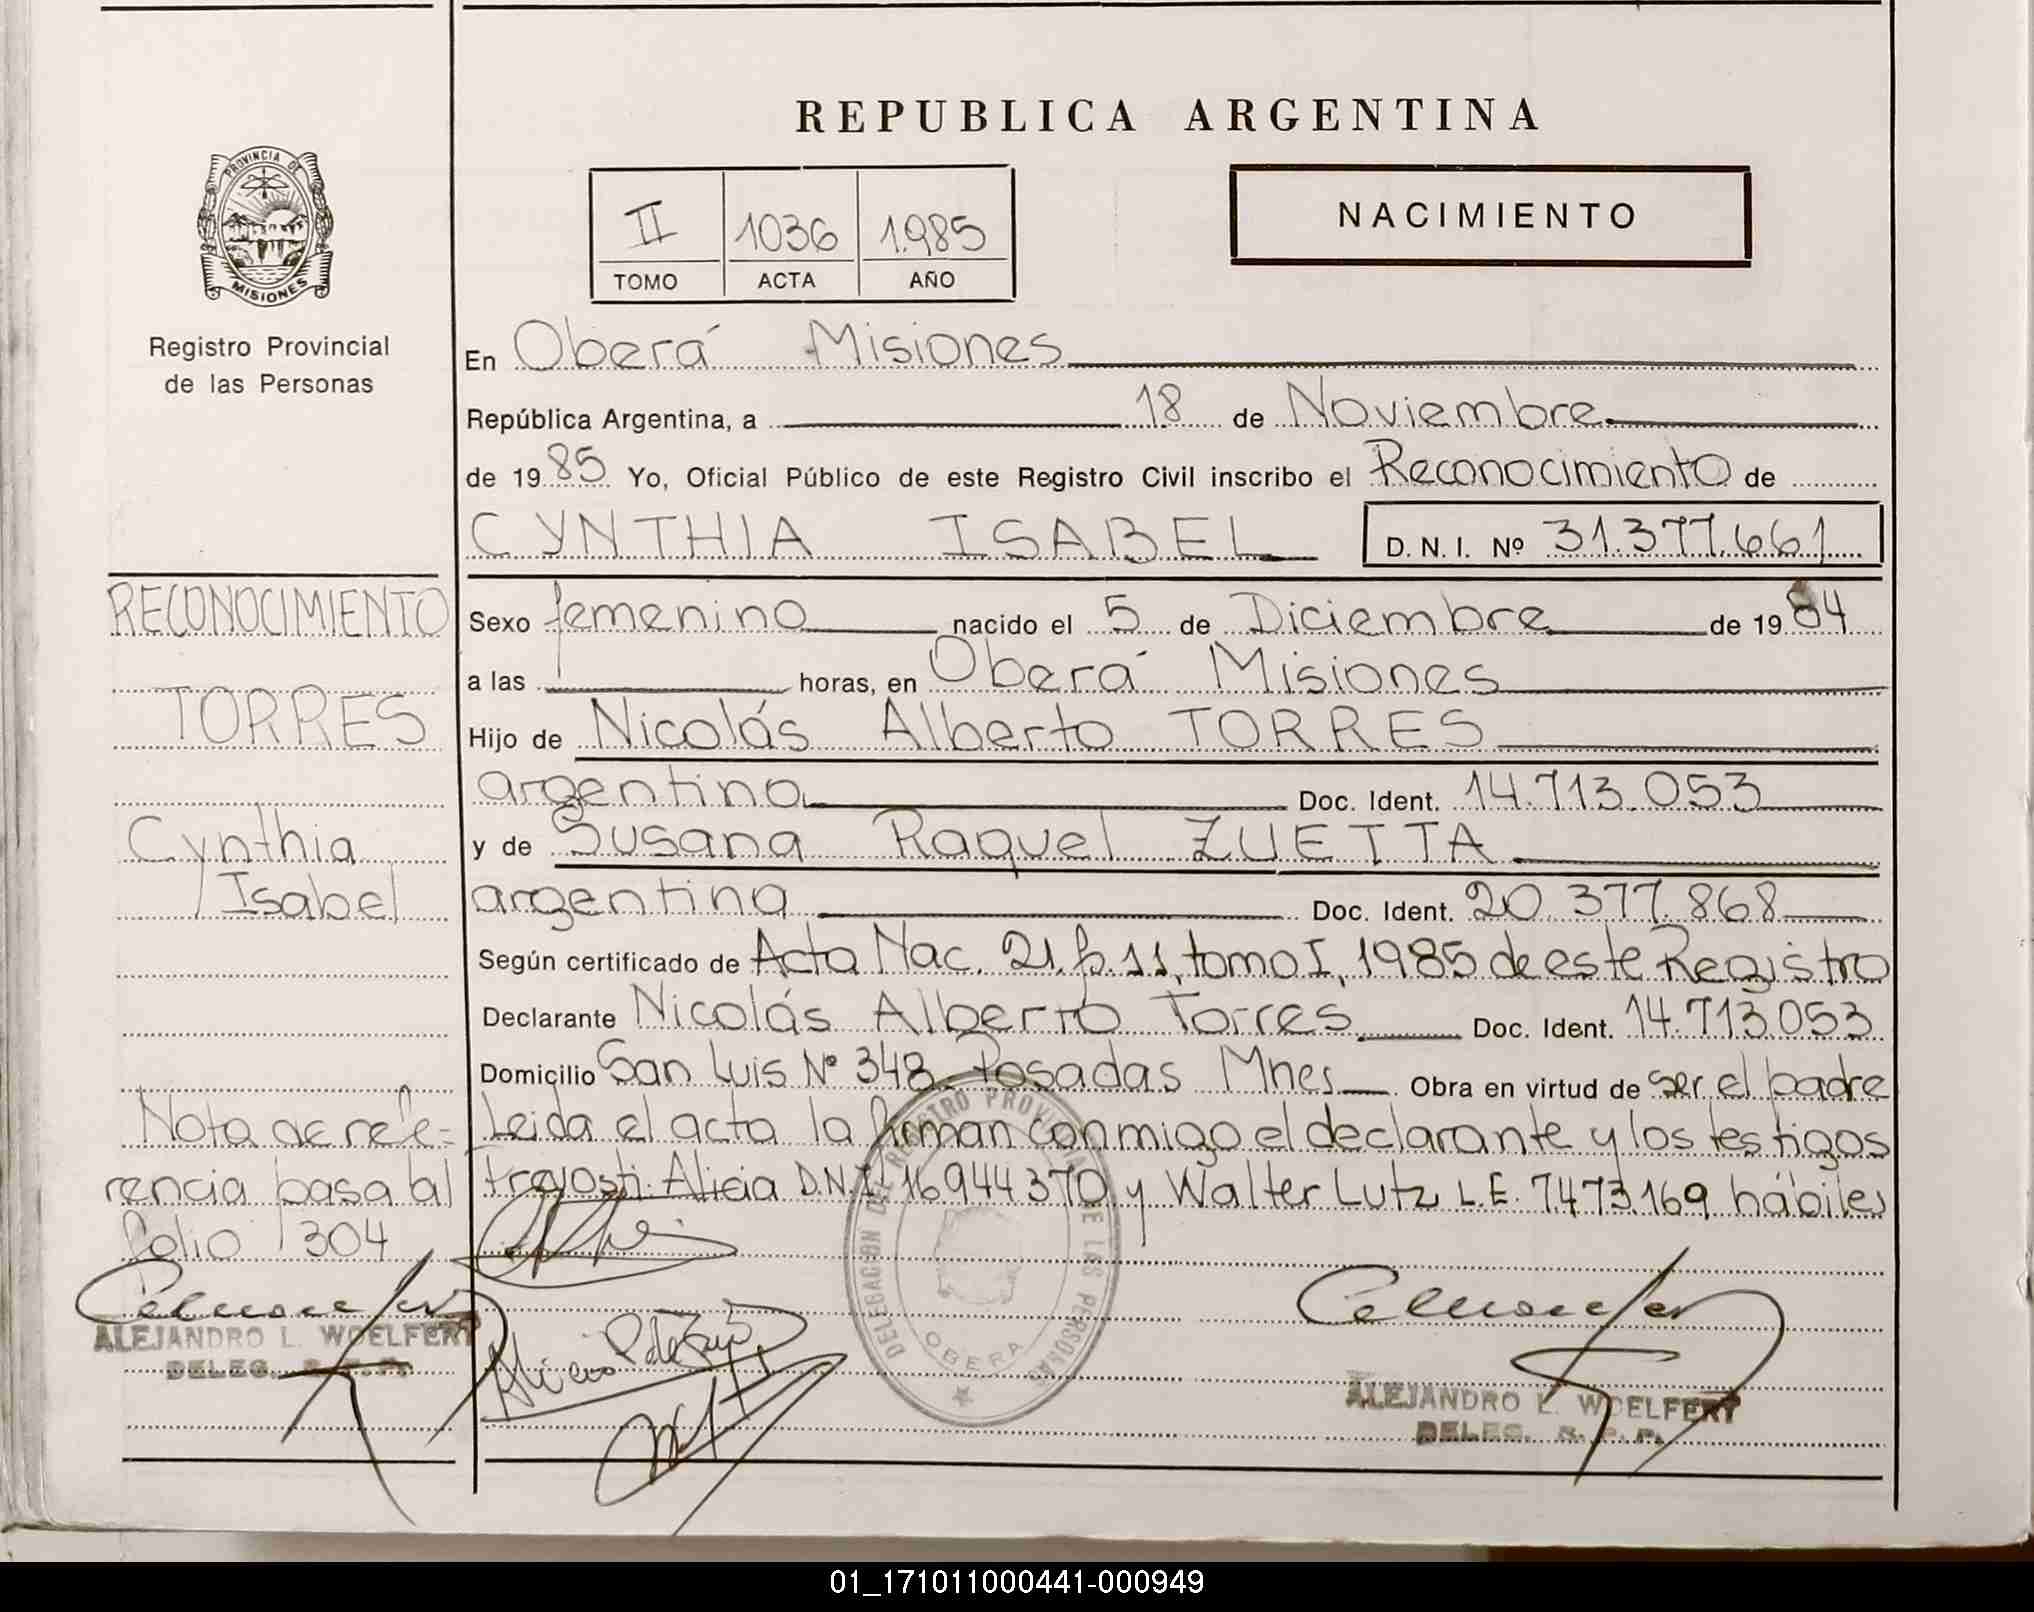 REPUBLICA ARGENTINA
PROVINCIA DE
MISIONES
Registro Provincial
de las Personas
II 1036 1.985
TOMO ACTA AÑO
NACIMIENTO
En Oberá Misiones
República Argentina, a 18 de Noviembre
de 1985 Yo, Oficial Público de este Registro Civil inscribo el Reconocimiento de
CYNTHIA ISABEL D. N. I. Nº 31.377.661
Sexo femenino nacido el 5 de Diciembre de 1984
a las horas, en Oberá Misiones
Hijo de Nicolás Alberto TORRES
argentino Doc. Ident. 14.713.053
y de Susana Raquel ZUETTA
argentina Doc. Ident. 20.377.868
Según certificado de Acta Nac. 21. fo. 11, tomo I, 1985 de este Registro
Declarante Nicolás Alberto Torres Doc. Ident. 14.713.053
Domicilio San Luis Nº 348 Posadas Mnes Obra en virtud de ser el padre
Leida el acta la firman conmigo el declarante y los testigos
Alicia D.N.I. 16944370 y Walter Lutz L.E. 7.473.169 hábiles
RECONOCIMIENTO
TORRES
Cynthia
Isabel
Nota de refe-
rencia pasa al
folio 304
ALEJANDRO L. WOELFERT
DELEG. R. P. P.
DELEGACION DEL REGISTRO PROVINCIAL DE LAS PERSONAS
OBERA
ALEJANDRO L. WOELFERT
DELEG. R. P. P.
01_171011000441-000949